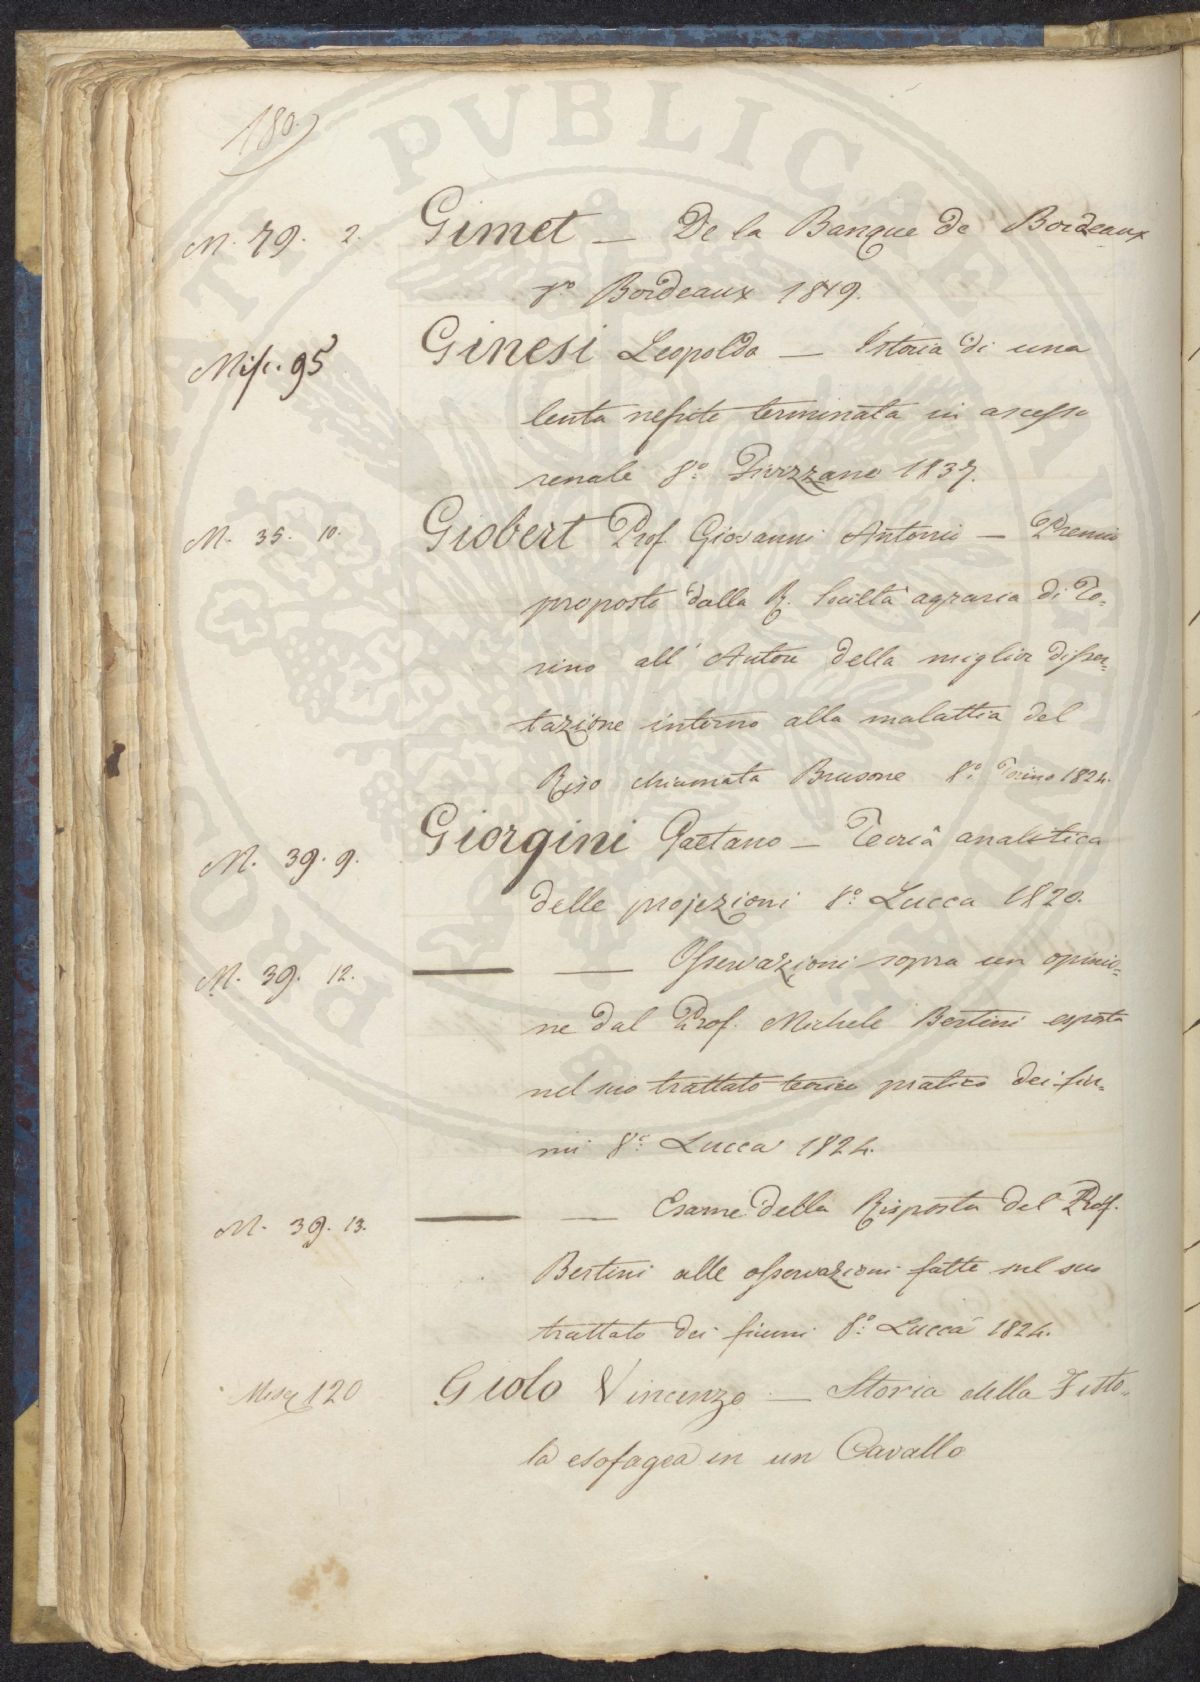 180.
M. 79. 2. Gimet — De la Banque de Bordeaux
8° Bordeaux 1849.
Misc. 95 Ginesi Leopoldo — Istoria di una
lenta nefrite terminata in ascesso
renale 8° Fivizzano 1837.
M. 35. 10. Giobert Prof. Giovanni Antonio — Premio
proposto dalla R. Società agraria di To-
rino all' Autore della miglior disser-
tazione intorno alla malattia del
Riso chiamata Brusone 8° Torino 1824.
M. 39. 9. Giorgini Gaetano — Teoria analitica
delle projezioni 8° Lucca 1820.
M. 39. 12. — — Osservazioni sopra un opinio-
ne dal Prof. Michele Bertini esposta
nel suo trattato teorico pratico dei fiu-
mi 8° Lucca 1824.
M. 39. 13. — — Esame della Risposta del Prof.
Bertini alle osservazioni fatte sul suo
trattato dei fiumi 8° Lucca 1824.
Misc 120 Giolo Vincenzo — Storia della Fisto-
la esofagea in un Cavallo